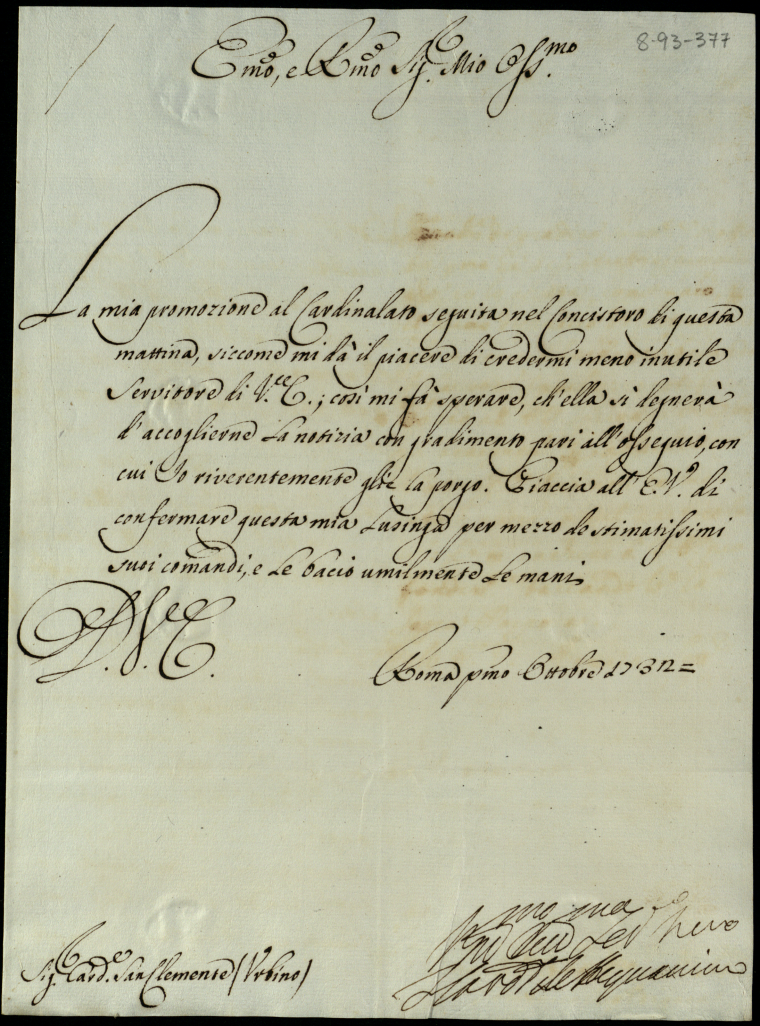 8-93-377
Em̃o, e Rm̃o Sig.r Mio Oss.mo
La mia promozione al Cardinalato seguita nel Concistoro di questa
mattina, siccome mi dà il piacere di credermi meno inutile
Servitore di V.ra E.; così mi fà sperare, ch'ella si degnerà
d'accoglierne la notizia con gradimento pari all'ossequio, con
cui Io riverentemente glie la porgo. Piaccia all' E. V.a di
confermare questa mia lusinga per mezzo de stimatissimi
suoi comandi, e le bacio umilmente le mani
D. V. E.
Roma pm̃o Ottobre 1732=
Sig.r Card.e San Clemente (Urbino)